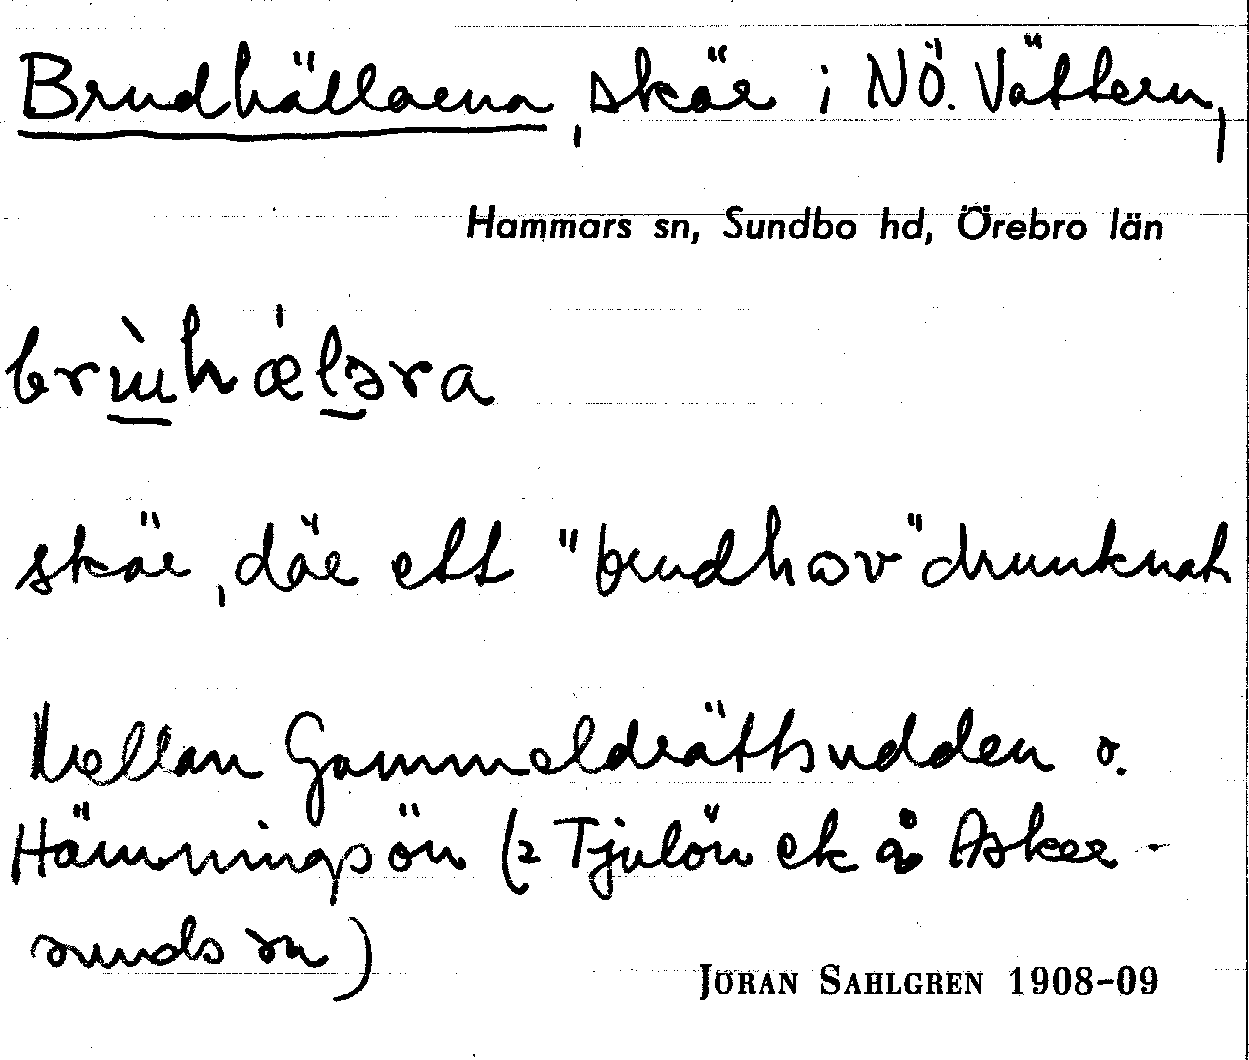 Brudhällarna, skär i NÖ. Vättern,
Hammars sn, Sundbo hd, Örebro län
brùhǽləra
skär, där ett "brudhov" drunknat
Mellan Gammeldråthudden o.
Hämningsön (2 Tjulön ek å Asker-
sunds sn)
JÖRAN SAHLGREN 1908-09